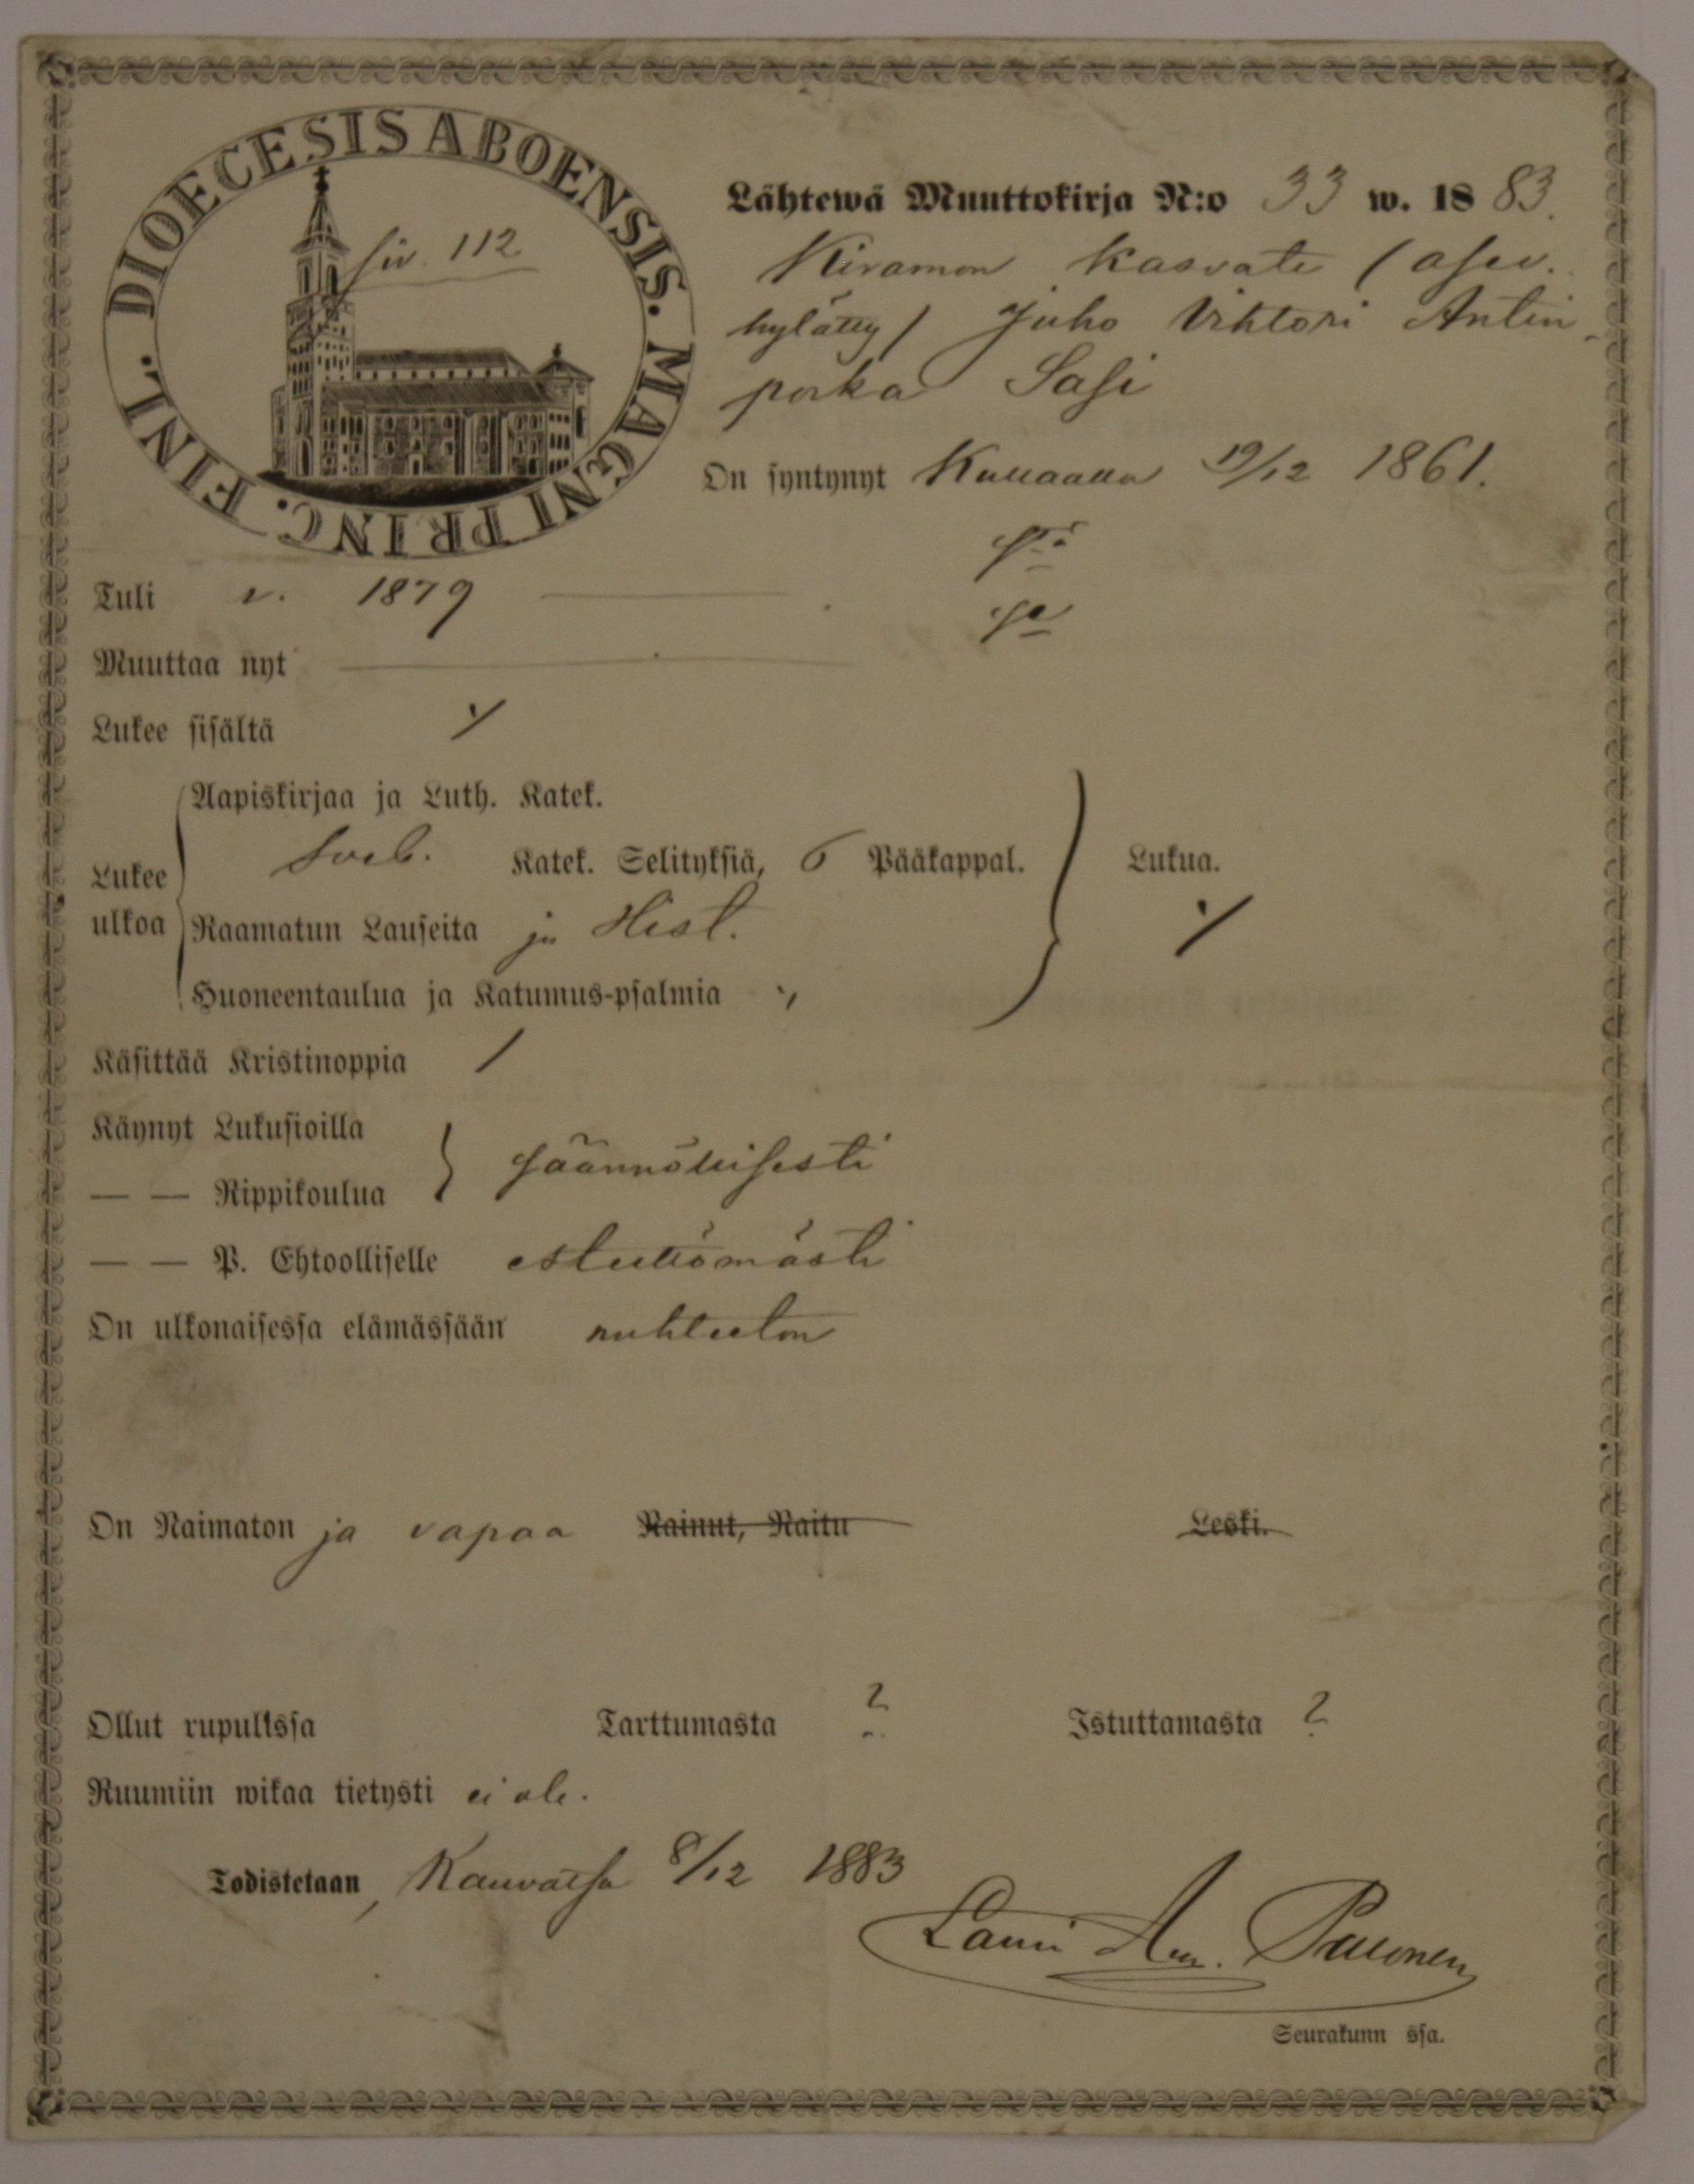 DIOECESIS ABOENSIS. MAGNI PRINC. FINL.
siv. 112
Lähtewä Muuttokirja N:o 33 w. 1883.
kasvate (asev.
hylätty) Juho Vihtori Antin
poika Sasi
On syntynyt Kullaalla 19/12 1861.
Tuli v. 1879
Muuttaa nyt
Lukee sisältä
Aapiskirjaa ja Luth. Katek.
Lukee ulkoa
Sveb. Katek. Selityksiä, 6 Pääkappal. Lukua.
Raamatun Lauseita ja Hist.
Huoneentaulua ja Katumus-psalmia
Käsittää Kristinoppia
Käynyt Lukusioilla
säännöllisesti
— — Rippikoulua
— — P. Ehtoolliselle esteettömästi
On ulkonaisessa elämässään nuhteeton
On Naimaton ja vapaa Nainut, Naitu Leski.
Ollut rupulissa Tarttumasta ? Istuttamasta ?
Ruumiin wikaa tietysti ei ole.
Todistetaan, Kauvatsa 8/12 1883
Lauri Paunonen
Seurakunn ssa.